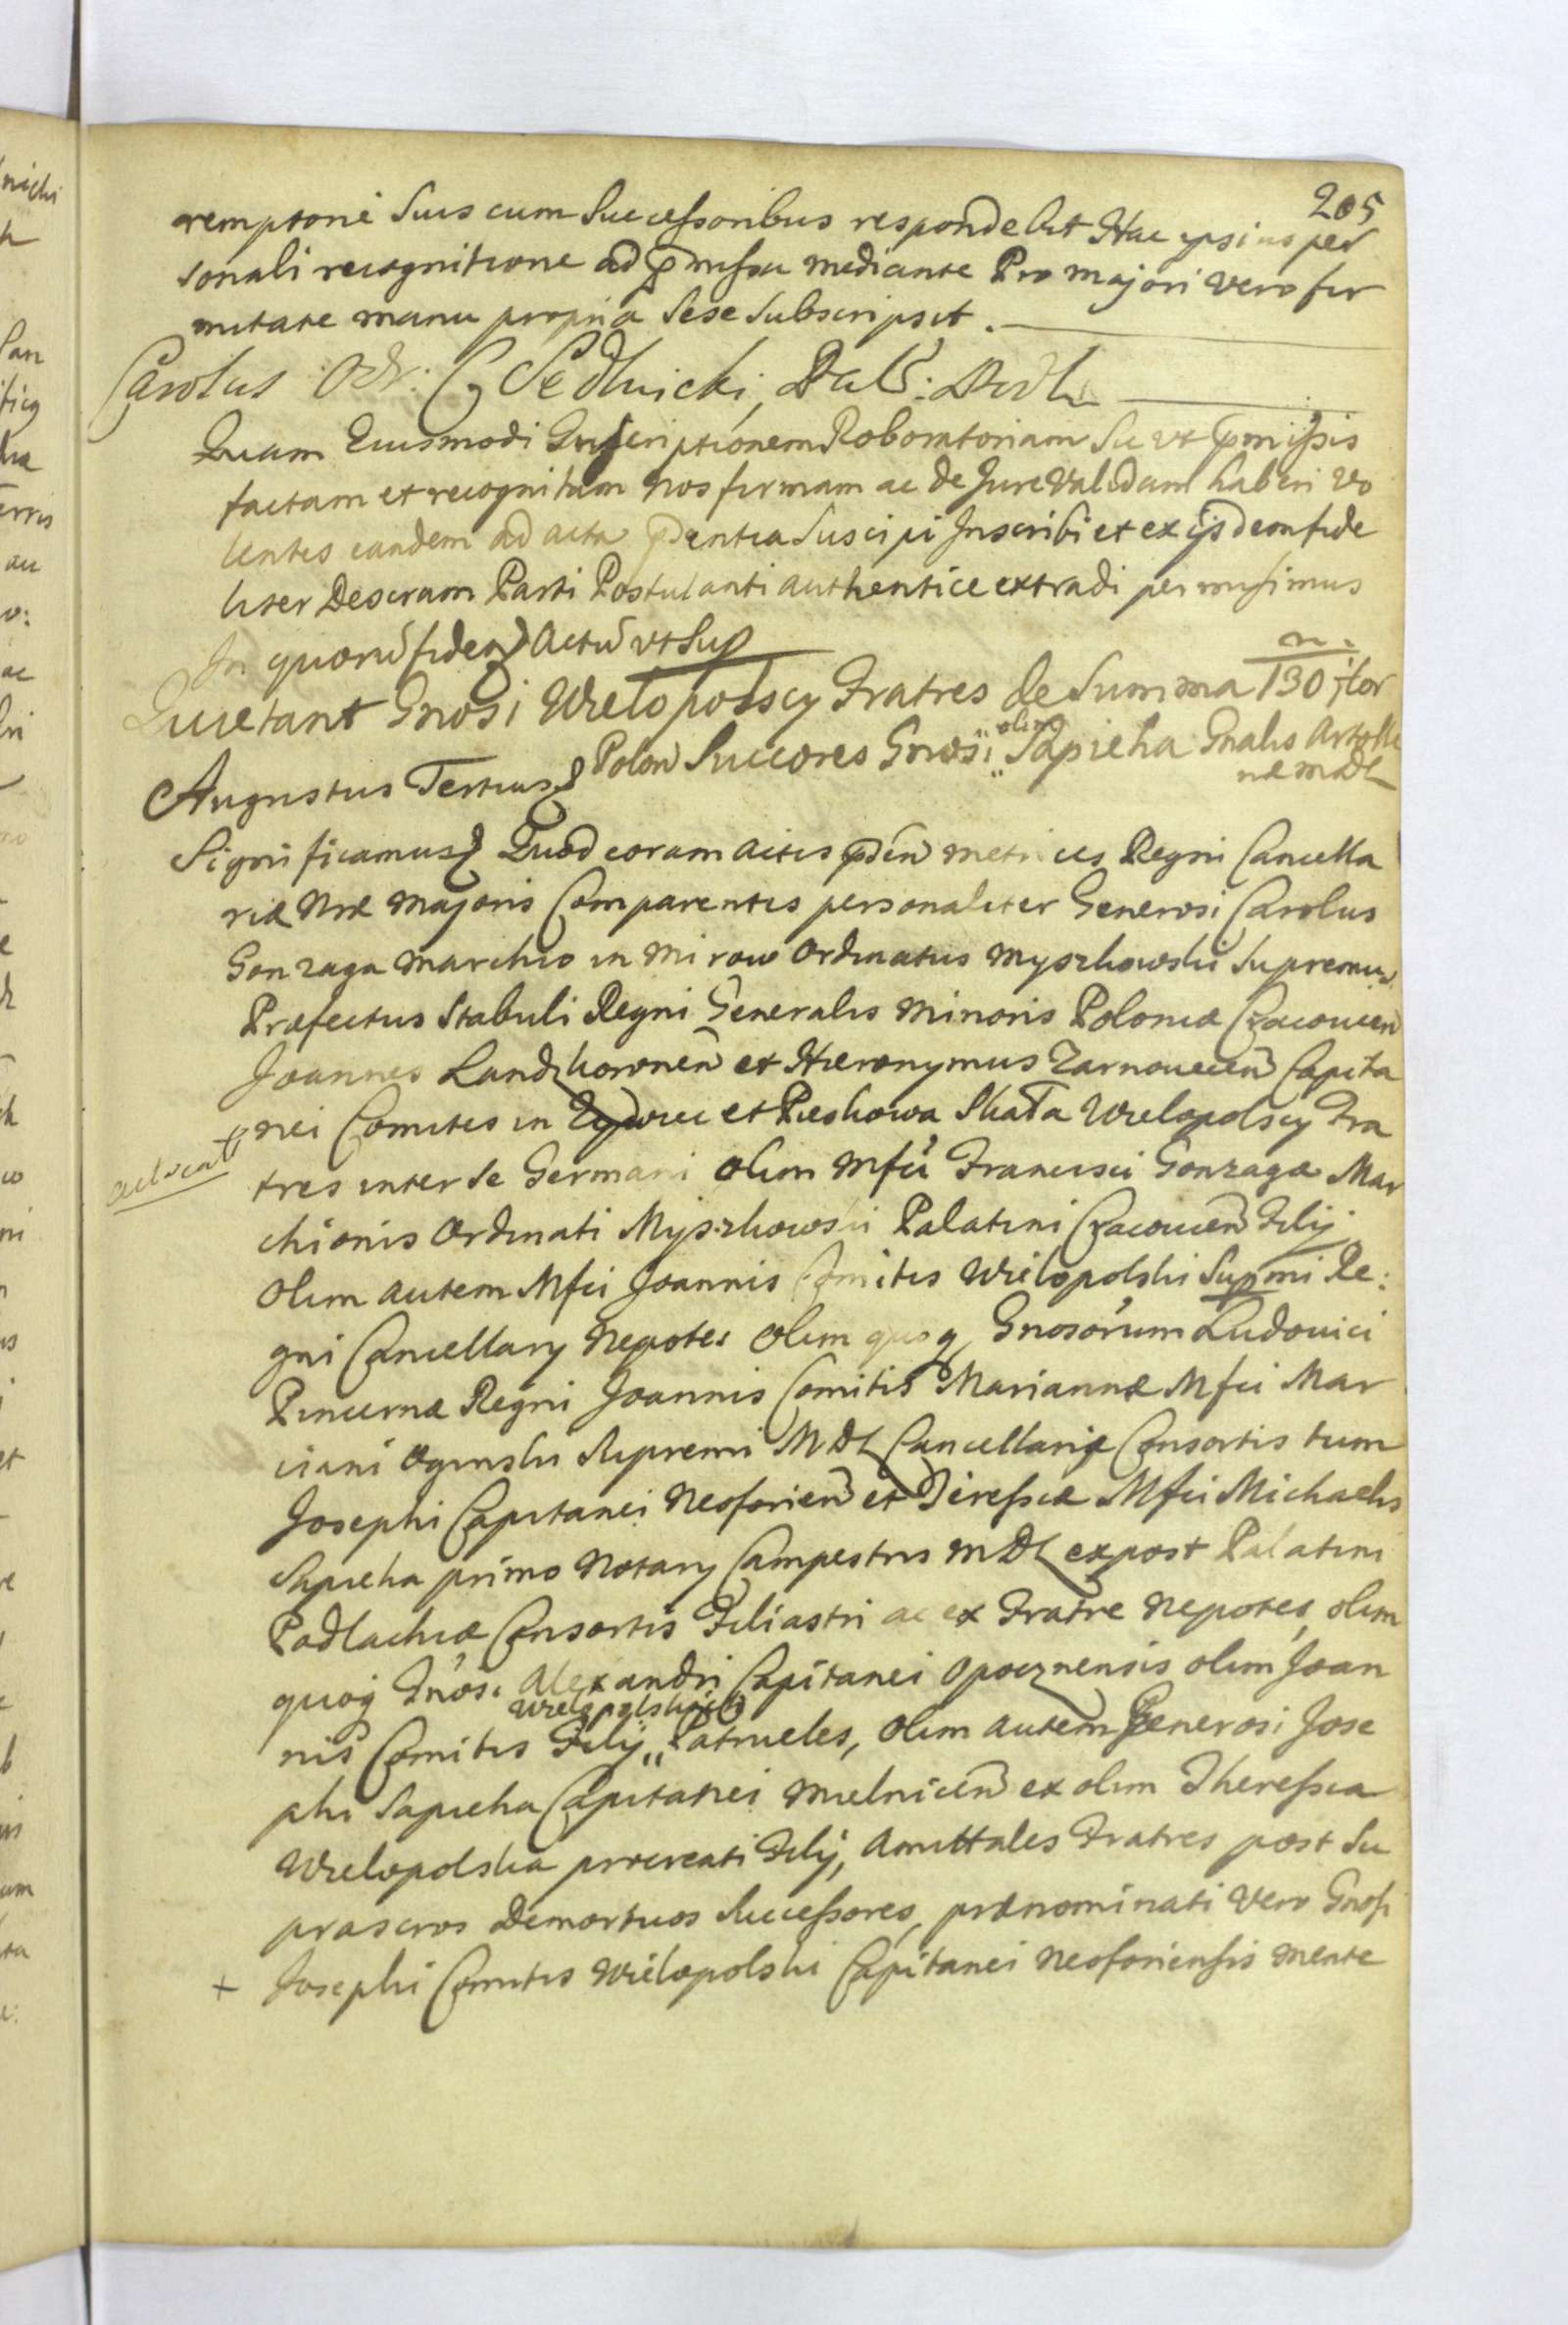 205
remptorie Suis cum Successoribus respondebit Hac ipsius per
sonali recognitione ad prmissa mediante Pro majori vero fir
mitate manu propria Sese Subscripsit.
Carolus Odr: C Sedlnicki, Pal: Podl
Quam Eiusmodi Inscriptionem Roboratoriam Sic ut prmissis
factam et recognitam Nos firmam ac de Jure Validam haberi Vo
lentes eandem ad acta prdentia Suscipi Inscribi et ex ijsdem fide
liter Descram Parti Postulanti authentice extradi permisimus
In quorū fidem Actū ut Sup
Quietant Gnosi Wielopolscy Fratres de Summa 130 m flor
Polon Succores Gnosi olim Sapieha Gnalis Artolle
riæ MDL
Augustus Tertius
Significamus Quod coram actis prden metrices Regni Cancella
riæ Nræ Majoris Comparentes personaliter Generosi Carolus
Gonzaga Marchio in Mirow Ordinatus Myszkowski Supremus
Præfectus Stabuli Regni Generalis Minoris Poloniæ Cracovien
Joannes Landzkoronen et Hieronymus Zarnovecen Capita
nei Comites in Zywiec et Pieskowa Skała Wielopolscy Fra
tres inter se Germani olim Mfci Francisci Gonzaga Mar
chionis Ordinati Myszkowski Palatini Cracovien Filij
Olim autem Mfci Joannis Comitis Wielopolski Supmi Re:
gni Cancellary Nepotes Olim quoq Gnosorum Ludovici
Pincernæ Regni Joannis Comitis Mariannæ Mfci Mar
ciani Oginski Supremi MDL Cancellarij Consortis tum
Josephi Capitanei Neoforien et Teressiæ Mfci Michaelis
Sapieha primo Notary Campestris MDL expost Palatini
Podlachiæ Consortis Filiastri ac ex Fratre Nepotes, olim
quoq Gnosi Alexandri Capitanei Opocznensis olim Joan
Wielopolskich
nis Comitis Filij Patrueles, Olim autem Generosi Jose
phi Sapieha Capitanei Mielnicen ex olim Theressia
Wielopolska procreati Filij, Amittales Fratres post Su
prascros Demortuos Successores, prænominati Vero Gnosi
+ Josephi Comitis Wielopolski Capitanei Neoforiensis mente